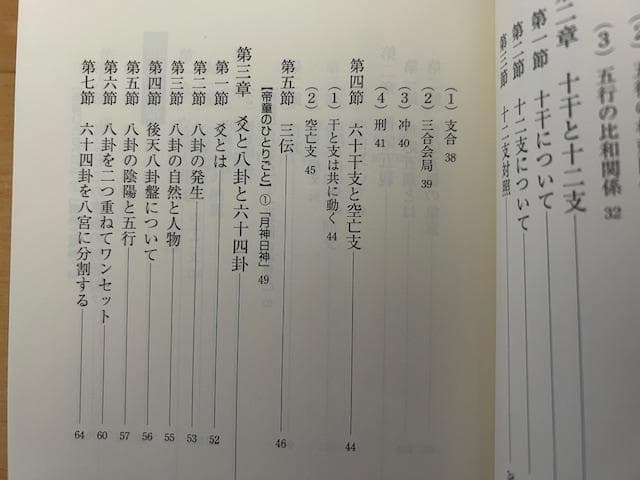 （3）五行の比和関係 32
二章 十干と十二支
第一節 十干について
第二節 十二支について
第三節 十二支対照
（1）支合 38
（2）三合会局 39
（3）冲 40
（4）刑 41
第四節 六十干支と空亡支 44
（1）干と支は共に動く 44
（2）空亡支 45
第五節 三伝 46
【帝童のひとりごと】①「月神日神」 49
第三章 爻と八卦と六十四卦
第一節 爻とは 52
第二節 八卦の発生 53
第三節 八卦の自然と人物 55
第四節 後天八卦盤について 56
第五節 八卦の陰陽と五行 57
第六節 八卦を二つ重ねてワンセット 60
第七節 六十四卦を八宮に分割する 64